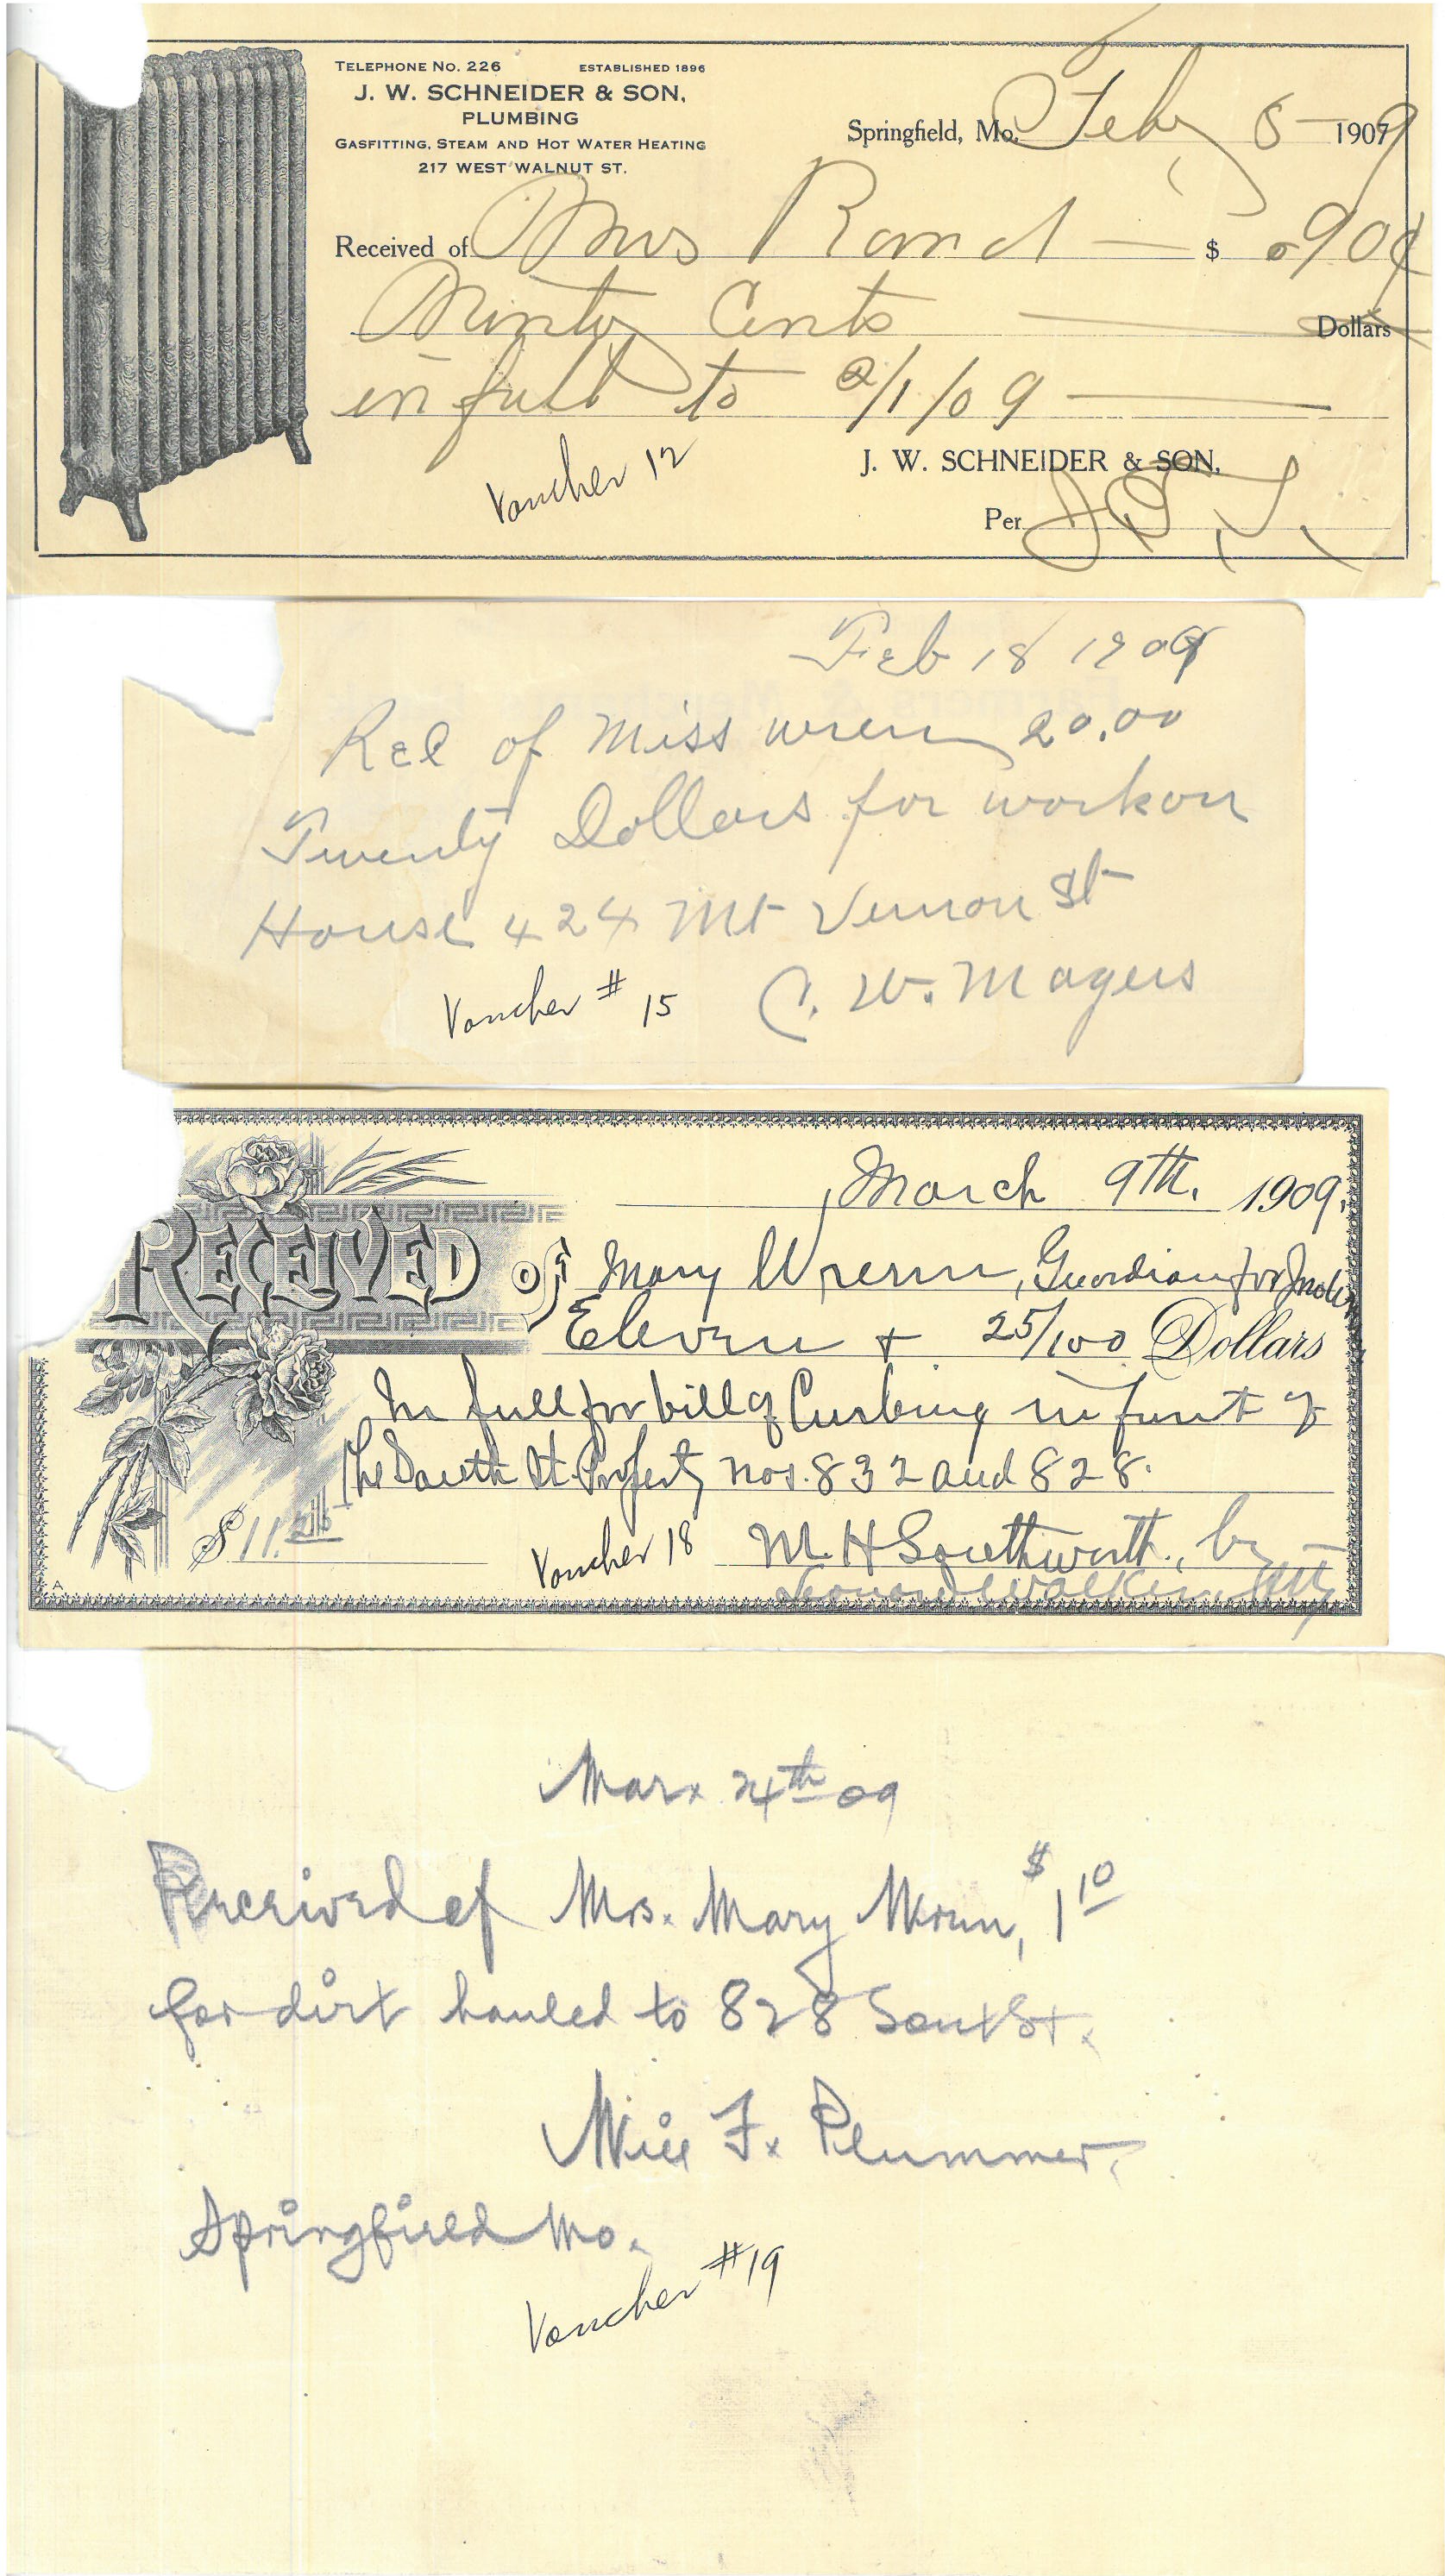 TELEPHONE No. 226 ESTABLISHED 1896
J. W. SCHNEIDER & SON,
PLUMBING
GASFITTING, STEAM AND HOT WATER HEATING
217 WEST WALNUT ST.
Springfield, Mo. Feby 5 1909
Received of Mrs Rand $ .90¢
Ninty Cents Dollars
in full to 2/1/09
Voucher 12
J. W. SCHNEIDER & SON,
Per
Feb 18 1909
Rec of Miss wren 20.00
Twenty Dollars for work on
House 424 Mt Vernon St
Voucher # 15 C. W. Magers
March 9th. 1909.
RECEIVED OF Mary Wrenn, Guardian for
Eleven + 25/100 Dollars
In full for bill of Curbing in front of
the South St. Property nos. 832 and 828.
$11.25
Voucher 18 M. H Southworth, by
Leonard Walker, Atty
A
Mar. 24th 09
Received of Mrs. Mary Wrenn, $1 10
for dirt hauled to 828 Sout St.
Will F. Plummer.
Springfield Mo.
Voucher #19